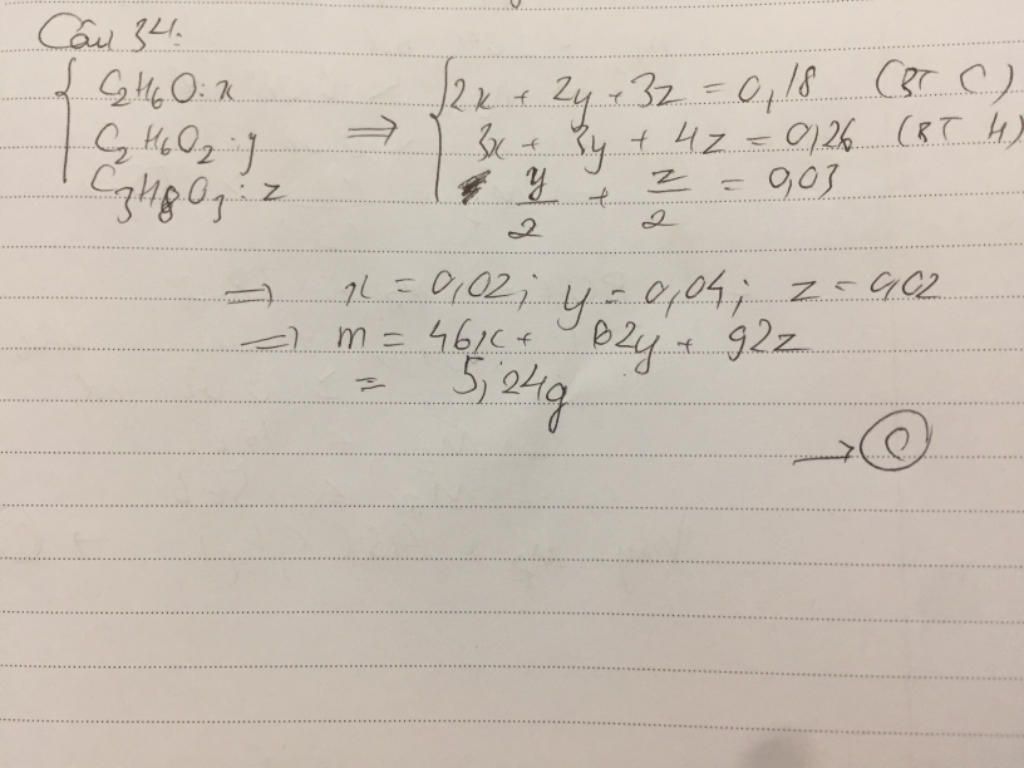 Câu 34:
{ C2H6O: x
C2H6O2: y
C3H8O3: z
⇒ { 2x + 2y + 3z = 0,18 (BT C)
3x + 3y + 4z = 0,26 (BT H)
y/2 + z/2 = 0,03
⇒ x = 0,02; y = 0,04; z = 0,02
⇒ m = 46x + 62y + 92z
= 5,24g
→ C